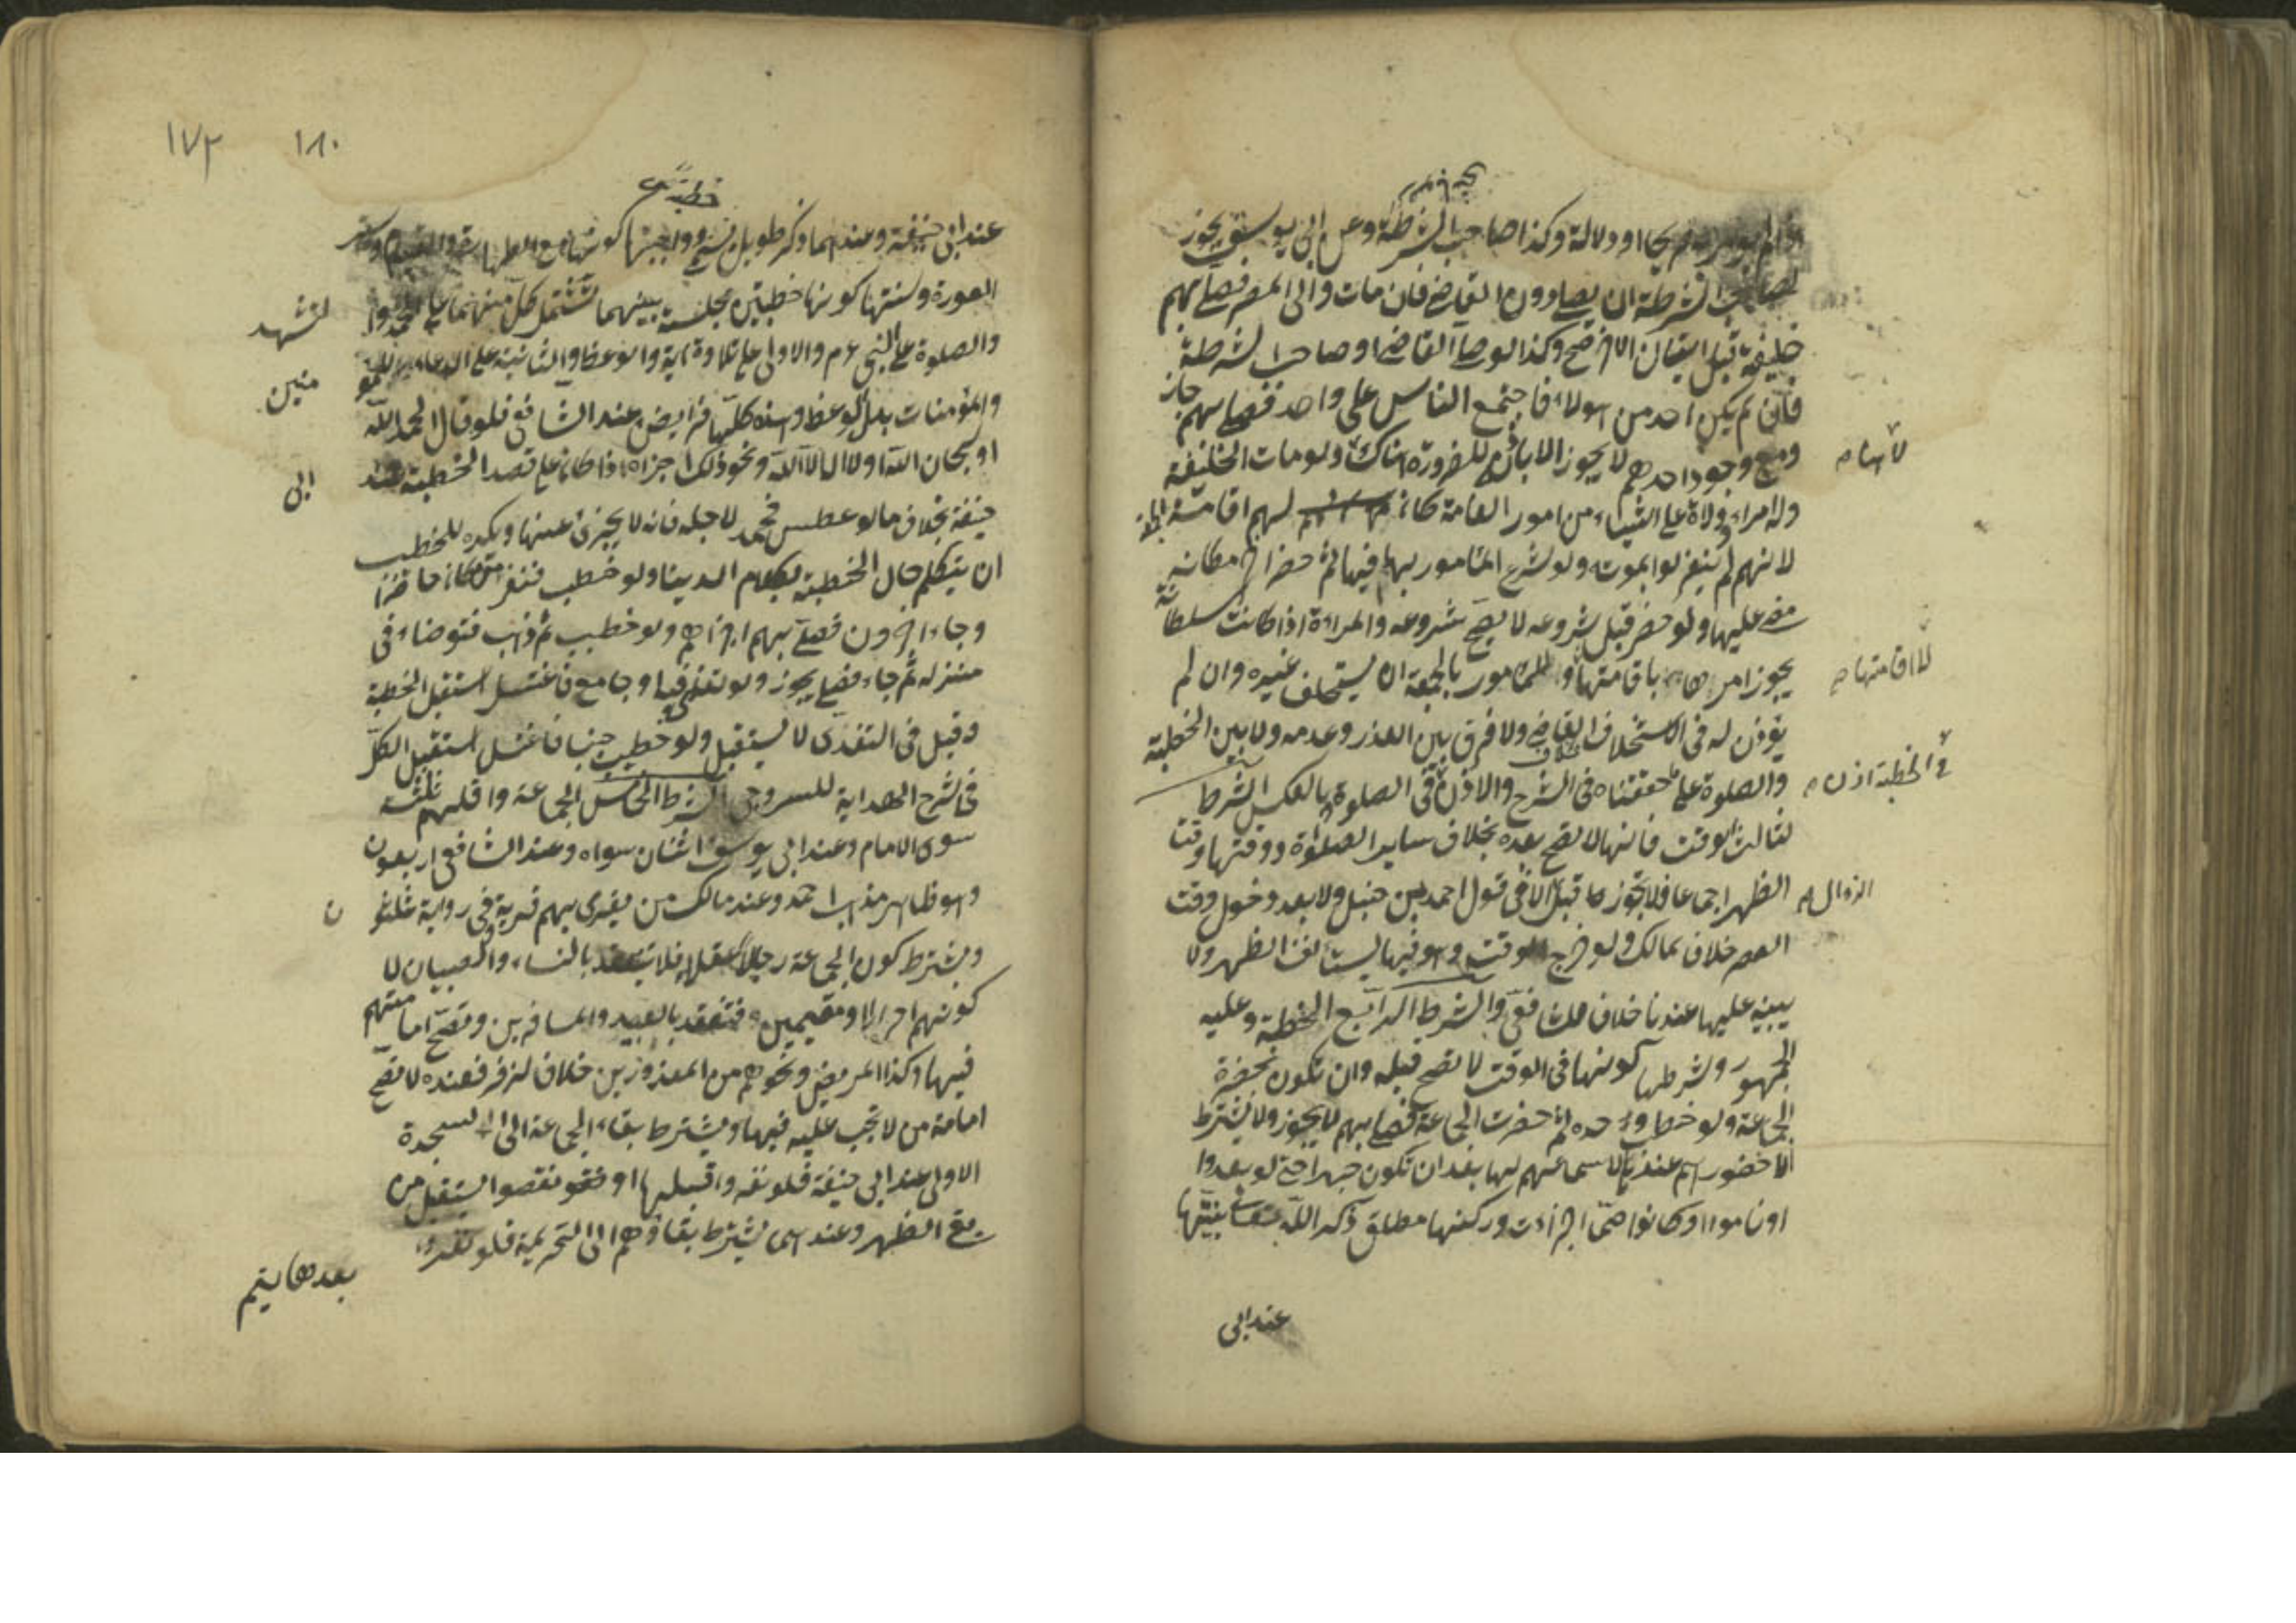 او دلالة وكذا صاحب الشرطة وعن ابى يوسف يجوز
لصاحب الشرطة ان يصلى دون القاضى فان مات والى المصر فصلى بهم
خليفته قبل اتيان الاخر صح وكذا لو صلى القاضى او صاحب الشرطة
فان لم يكن احد من هولاء فاجتمع الناس على واحد فصلى بهم جاز
ومع وجود احدهم لا يجوز الا باذنه للضرورة هناك ولو مات الخليفة
وله امراء وولاة على اشياء من امور العامة كان لهم اقامة الجمعة
لانهم لم ينعزلوا بموته ولو شرع المامور بها فيها ثم حضر اخر مكانه
مضى عليها ولو حضر قبل شروعه لا يصح شروعه والمراءة اذا كانت سلطانة
يجوز امرها باقامتها وللمامور بالجمعة ان يستخلف غيره وان لم
يؤذن له فى الاستخلاف بخلاف القاضى ولا فرق بين العذر وعدمه ولا بين الخطبة
والصلوة على ما حققناه فى الشرح والاذن فى الصلوة وبالعكس الشرط
الثالث الوقت فانها لا تصح بعده بخلاف ساير الصلوة ووقتها وقت
الظهر اجماعا فلا تجوز قبل الا فى قول احمد بن حنبل ولا بعد دخول وقت
العصر خلافا لمالك ولو خرج الوقت وهو فيها يستأنف الظهر ولا
يبنيه عليها عندنا خلافا للشافعى والشرط الرابع الخطبة وعليه
الجمهور وشرطها كونها فى الوقت لا تصح قبله وان تكون بحضرة
الجماعة ولو خطب وحده ثم حضرت الجماعة فصلى بهم لا يجوز ولا يشترط
الا حضورهم عندنا لا سماعهم لها بعد ان تكون جهرا حتى لو بعدوا
او ناموا او كانوا صمّا اجزأت وركنها مطلق ذكر الله تعالى بنيتها
لا اقامتها
فى الخطبة اذن
الزوال
عند ابى
١٨٠ ١٧٢
عند ابى حنيفة وعندهما ذكر طويل يسمى خطبة وواجبها كونها مع الطهارة والقيام وستر
العورة وسنتها كونها خطبتين بجلسة بينهما تشتمل كل منهما على الحمد والتشهد
والصلوة على النبى عم والاولى على تلاوة اية والوعظ والثانية على الدعاء للمؤمنين
والمؤمنات بدل الوعظ وهذه كلها فرايض عند الشافعى فلو قال الحمد لله
او سبحان الله او لا اله الا الله ونحو ذلك اجزاه اذا كان على قصد الخطبة عند ابى
حنيفة بخلاف ما لو عطس فحمد لاجله فانه لا يجزئ عنها ويكره للخطيب
ان يتكلم حال الخطبة بكلام الدنيا ولو خطب فنفر من كان حاضرا
وجاء اخرون فصلى بهم اجزأهم ولو خطب ثم ذهب فتوضاء فى
منزله ثم جاء فصلى يجوز ولو تغذى فيها او جامع فاغتسل استقبل الخطبة
وقيل فى التغذى لا يستقبل ولو خطب جنبا فاغتسل استقبل الكل
فى شرح الهداية للسروجى الشرط الخامس الجماعة واقلهم ثلثة
سوى الامام وعند ابى يوسف اثنان سواه وعند الشافعى اربعون
وهو ظاهر مذهب احمد وعند مالك من يقرى بهم قرية فى رواية ثلثون
ويشترط كون الجماعة رجالا عقلاء فلا تنعقد بالنساء والصبيان لا
كونهم احرارا ومقيمين فتنعقد بالعبيد والمسافرين وتصح امامتهم
فيها وكذا المريض ونحوهم من المعذورين خلافا لزفر فعنده لا تصح
امامة من لا تجب عليه فيها ويشترط بقاء الجماعة الى السجدة
الاولى عند ابى حنيفة فلو نفروا قبلها او نقصوا يستقبل من
بقى الظهر وعندهما يشترط بقاؤهم الى التحريمة فلو نفروا
بعدها يتم